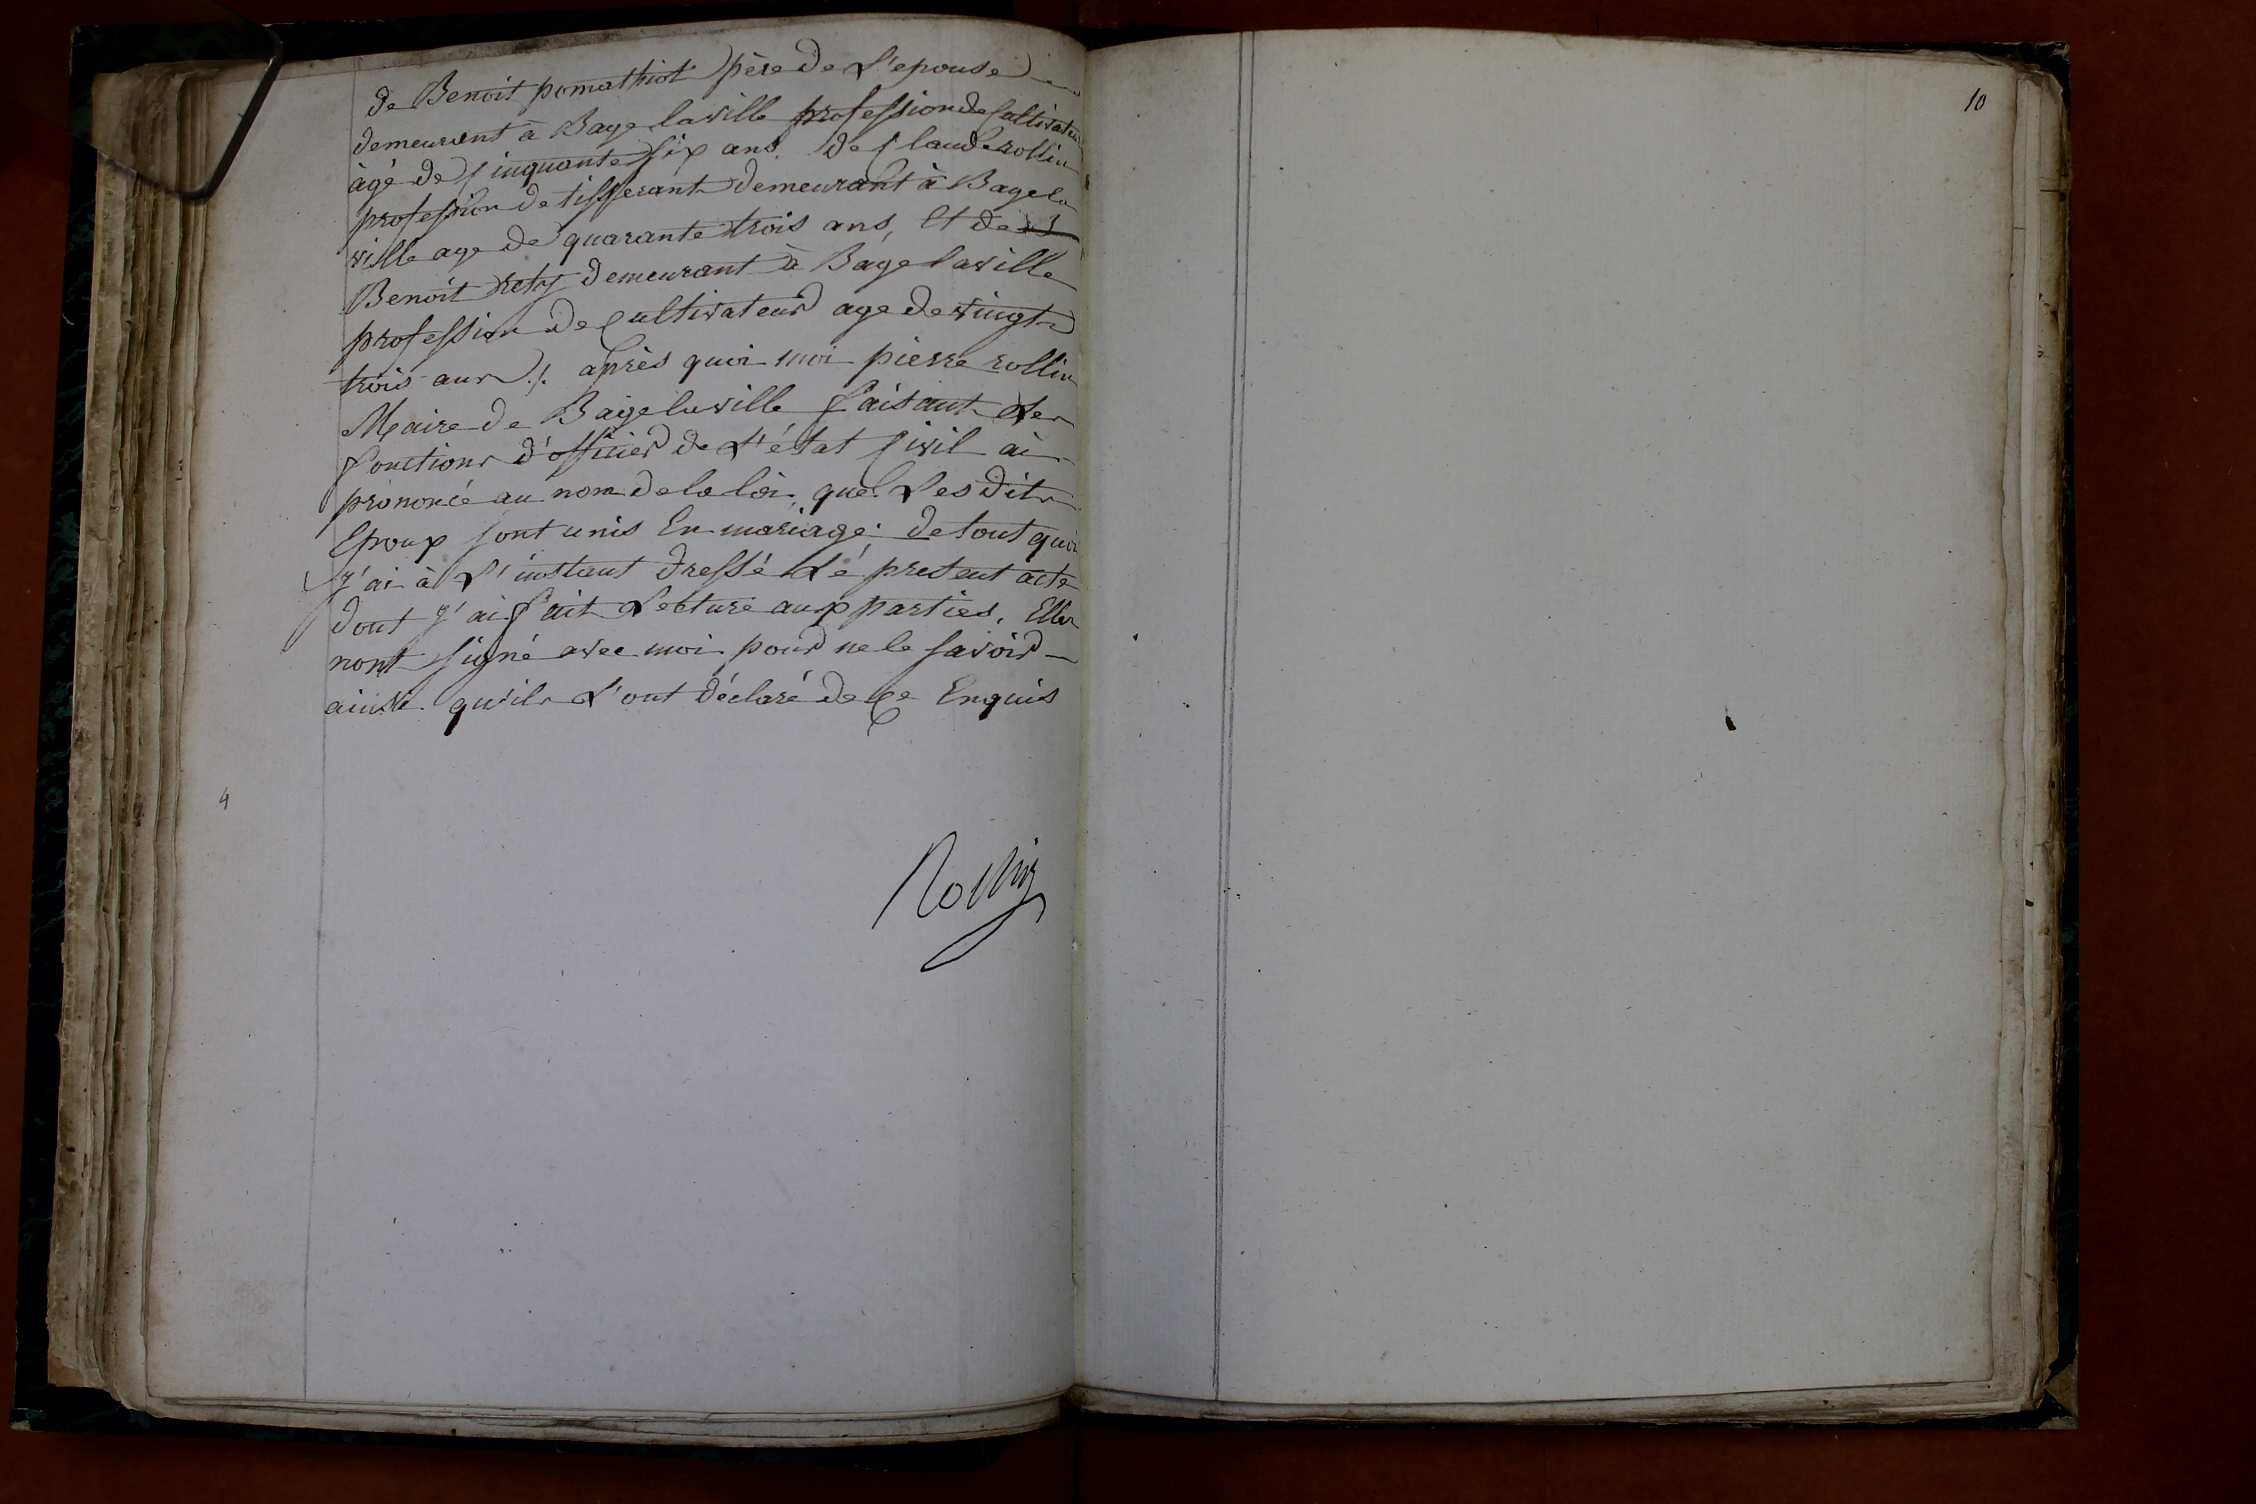 de Benoit pomathiot père de L'epouse
demeurant à Bage laville profession de Cultivateur
àgé de Cinquante Six ans. de Claude rollin
profession de tisserant demeurant à Bage la
ville age de quarante trois ans, Et de
Benoit rety demeurant à Bage laville
profession de Cultivateur age de vingt
trois ans ./. après quoi moi pierre rollin
Maire de Baige laville faisant les
fonctions d'officier de L'état Civil ai
prononcé au nom de la loi, que Les dits
Epoux sont unis En mariage; de tout quoi
j'ai à L'instant dressé Lé present acte
dont j'ai fait Lecture aux parties. Elles
nont signé avec moi pour ne le savoir
ainsi qu'ils L'ont déclaré de Ce Enquis
4
Rollin
10